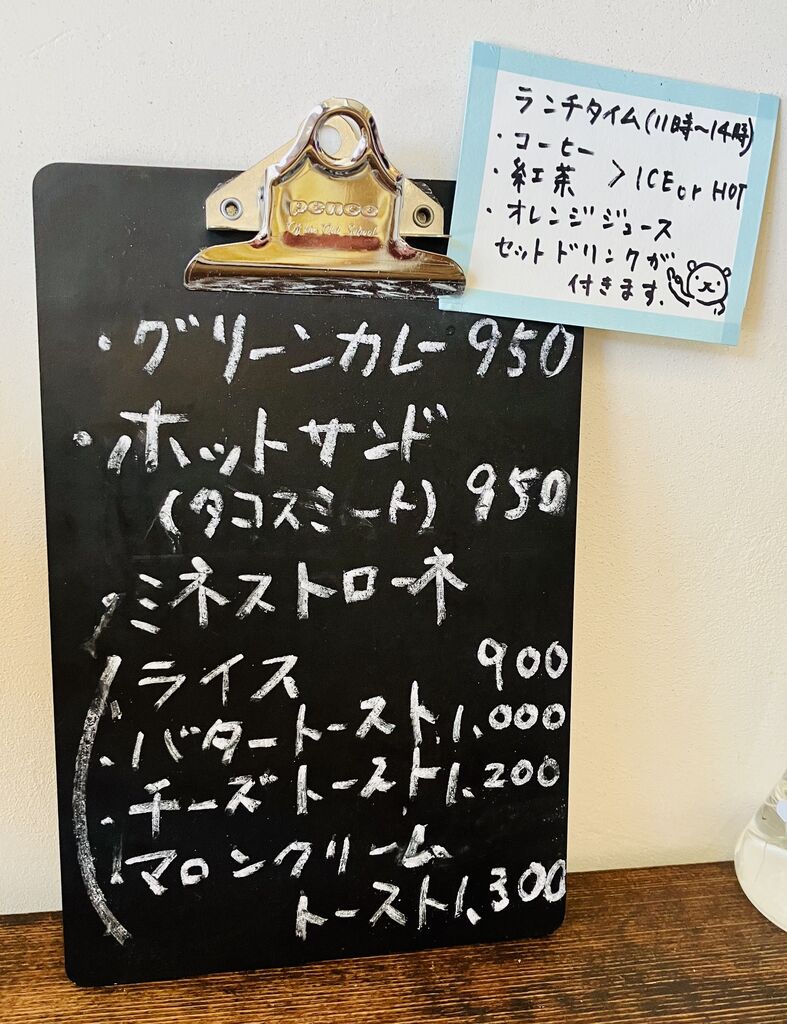 ランチタイム(11時~14時)
・コーヒー
・紅茶 > ICE or HOT
・オレンジジュース
セットドリンクが
付きます.
penco
・グリーンカレー 950
・ホットサンド
(タコスミート) 950
・ミネストローネ
・ライス 900
・バタートースト 1,000
・チーズトースト 1,200
・マロンクリーム
トースト 1,300